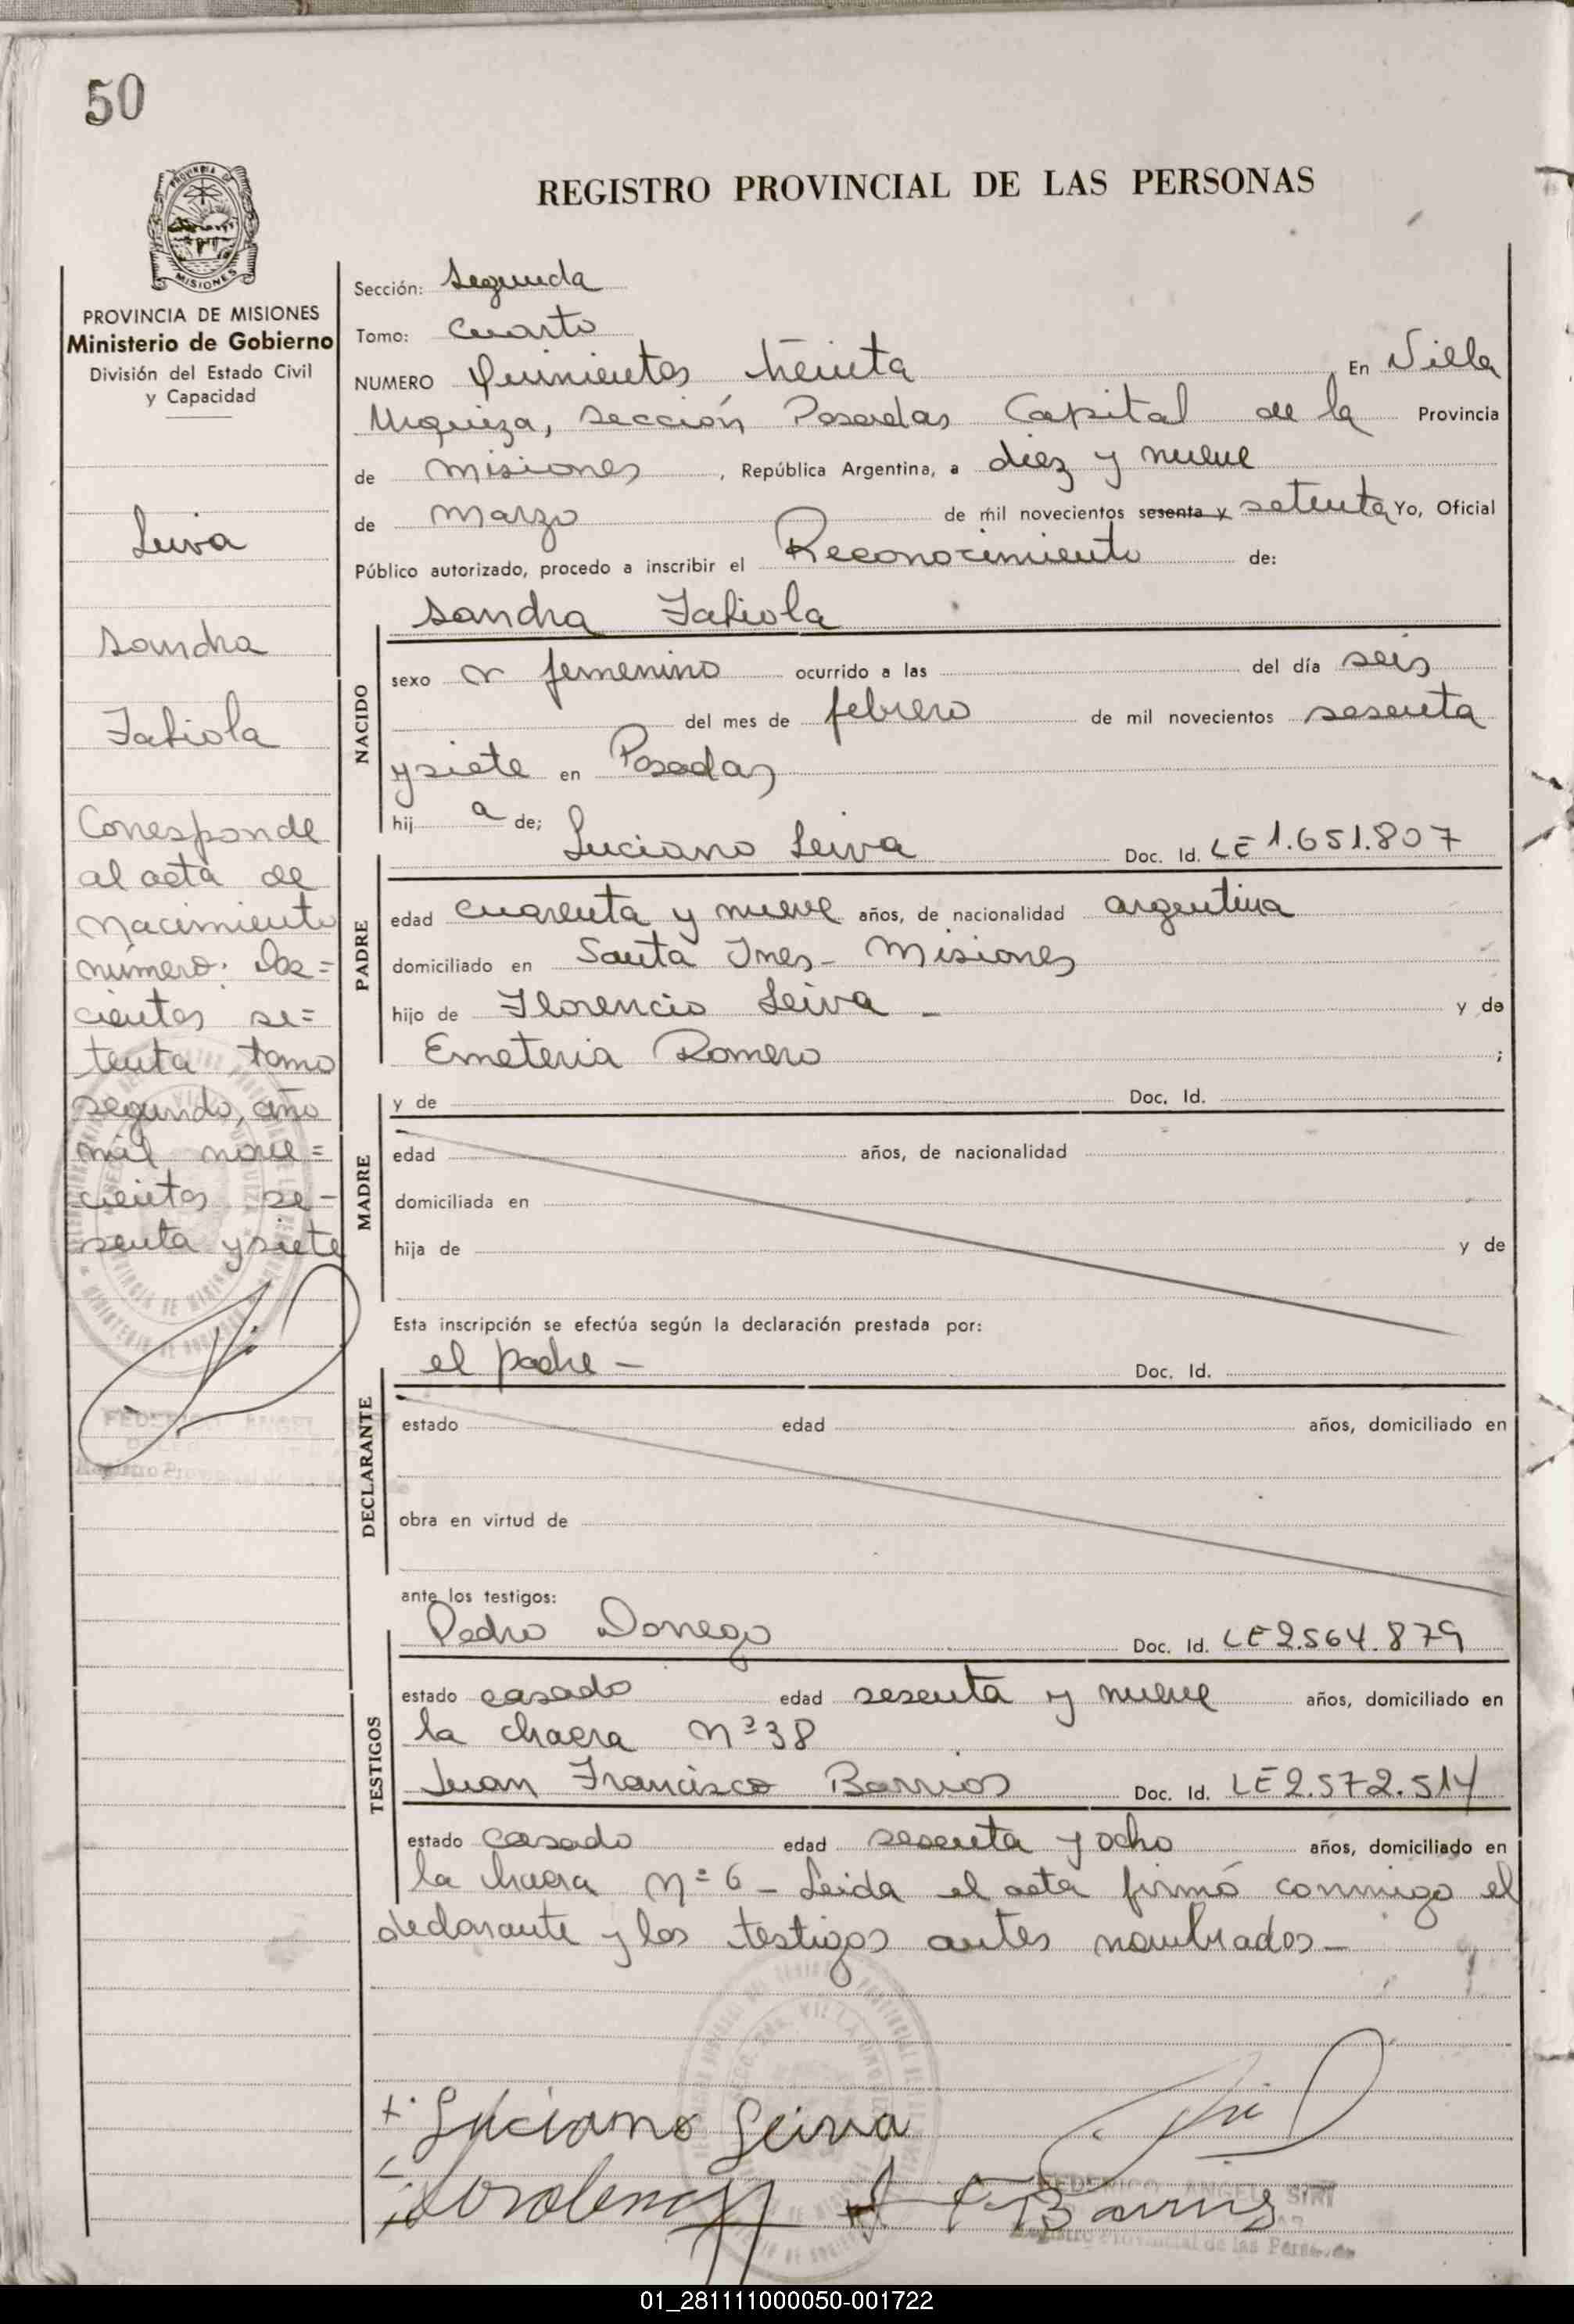 50
PROVINCIA DE
MISIONES
REGISTRO PROVINCIAL DE LAS PERSONAS
PROVINCIA DE MISIONES
Ministerio de Gobierno
División del Estado Civil
y Capacidad
Leiva
Sandra
Fabiola
Corresponde
al acta de
nacimiento
número: Dos=
cientos se=
tenta tomo
segundo, año
mil nove=
cientos se-
senta y siete
FEDERICO ANGEL
Sección: Segunda
Tomo: Cuarto
NUMERO Quinientos treinta En Villa
Urquiza, sección Posadas Capital de la Provincia
de Misiones, República Argentina, a diez y nueve
de Marzo de mil novecientos sesenta y setenta Yo, Oficial
Público autorizado, procedo a inscribir el Reconocimiento de:
Sandra Fabiola
NACIDO
sexo femenino ocurrido a las del día seis
del mes de febrero de mil novecientos sesenta
y siete en Posadas
hij a de;
Luciano Leiva Doc. Id. LE 1.651.807
PADRE
edad cuarenta y nueve años, de nacionalidad argentina
domiciliado en Santa Ines - Misiones
hijo de Florencio Leiva - y de
Emeteria Romero ;
MADRE
y de Doc. Id.
edad años, de nacionalidad
domiciliada en
hija de y de
Esta inscripción se efectúa según la declaración prestada por:
el padre - Doc. Id.
DECLARANTE
estado edad años, domiciliado en
obra en virtud de
ante los testigos:
Pedro Dorrego Doc. Id. LE 2.564.879
TESTIGOS
estado casado edad sesenta y nueve años, domiciliado en
la chacra Nº 38
Juan Francisco Barrios Doc. Id. LE 2.572.514
estado casado edad sesenta y ocho años, domiciliado en
la chacra Nº 6 - Leida el acta firmó conmigo el
declarante y los testigos antes nombrados -
Luciano Leiva
Barrios
FEDERICO ANGEL SIRI
Registro Provincial de las Personas
01_281111000050-001722